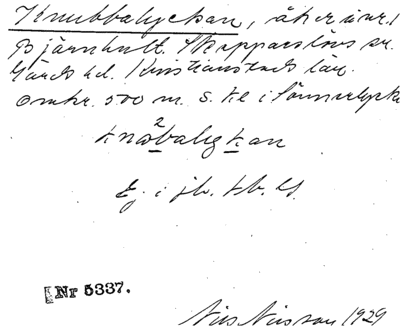 Knubbalyckan, åker å nr. 1
Bjärnhult. Skepparslövs sn.
Gärds hd. Kristianstads län.
Omkr. 500 m. S. k. i Sönnerlycke
knåbalykan
Ej i jb. tb. ll.
Nr 5337.
Nils Nilsson 1929